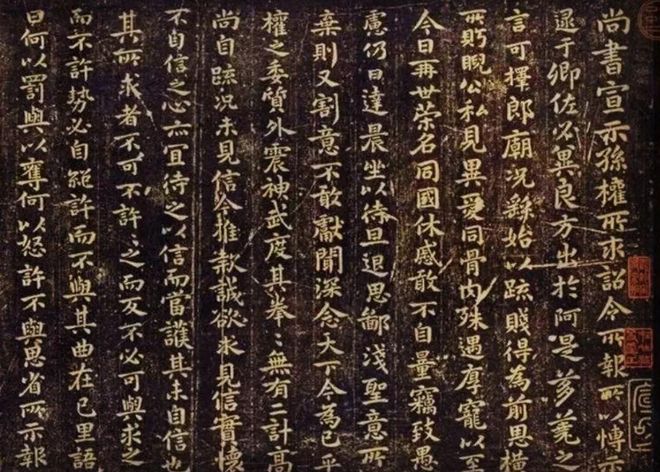 尚書宣示孫權所求詔令所報所以博
逮于卿佐必異良方出於阿是芻蕘之
言可擇郎廟況繇始以疏賤得為前恩橫
所眄睨公私見異愛同骨肉殊遇厚寵以至
今日再世榮名同國休慼敢不自量竊致愚
慮仍日達晨坐以待旦退思鄙淺聖意所
棄則又割意不敢獻聞深念天下今為已平
權之委質外震神武度其拳〻無有二計高
尚自疏況未見信今推款誠欲求見信實懷
不自信之心亦宜待之以信而當護其未自信也
其所求者不可不許〻之而反不必可與求之
而不許勢必自絕許而不與其曲在己里語
曰何以罰與以奪何以怒許不與思省所示報